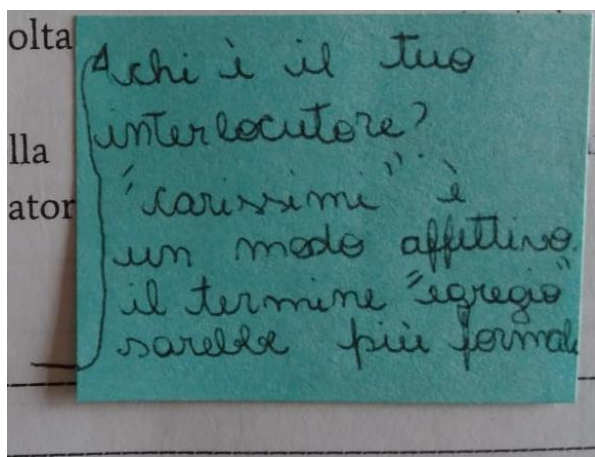 olta
lla
ator
A chi è il tuo
interlocutore?
"carissimi" è
un modo affettivo.
il termine "egregio"
sarebbe più formale